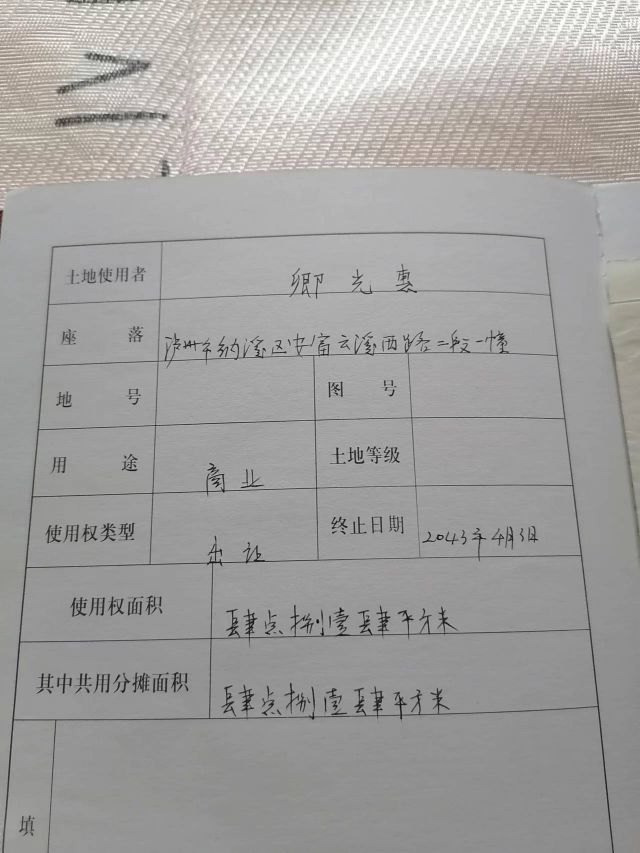 土地使用者 卿光惠
座落 泸州市纳溪区安富云溪西路二段一幢
地号 图号
用途 商业 土地等级
使用权类型 出让 终止日期 2043年4月3日
使用权面积 肆点捌壹肆平方米
其中共用分摊面积 肆点捌壹肆平方米
填